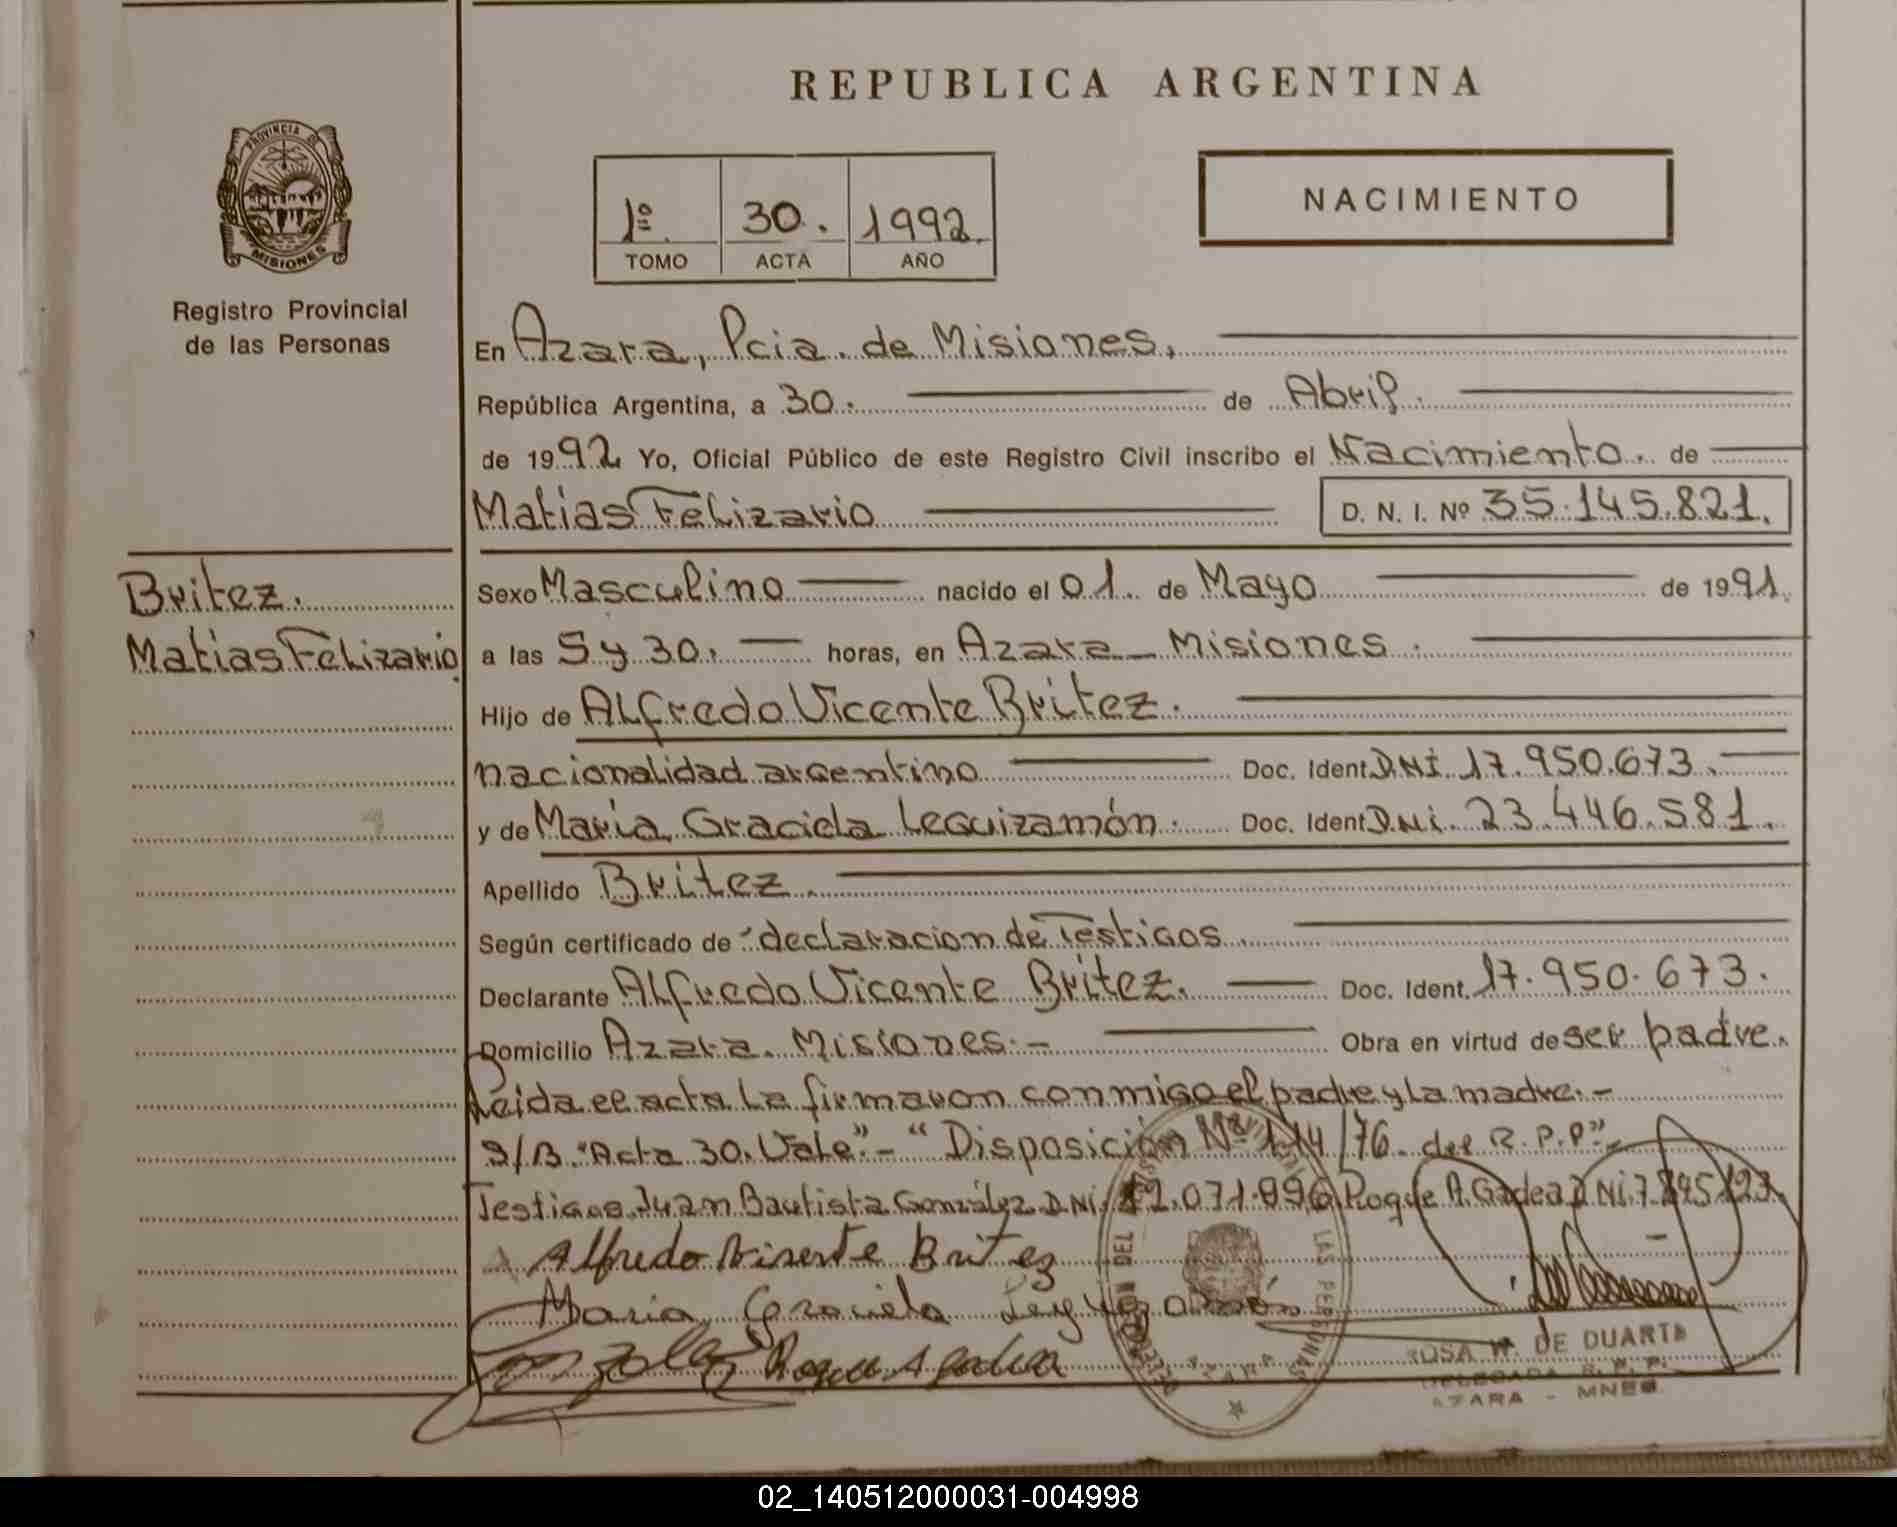 REPUBLICA ARGENTINA
PROVINCIA DE
MISIONES
Registro Provincial
de las Personas
1º 30. 1992.
TOMO ACTA AÑO
NACIMIENTO
En Azara, Pcia. de Misiones,
República Argentina, a 30. de Abril.
de 1992 Yo, Oficial Público de este Registro Civil inscribo el Nacimiento. de
Matias Felizario D. N. I. Nº 35.145.821.
Britez.
Matias Felizario.
Sexo Masculino nacido el 01. de Mayo de 1991.
a las 5 y 30. horas, en Azara_Misiones.
Hijo de Alfredo Vicente Britez.
nacionalidad argentino Doc. Ident. DNI. 17.950.673.
y de María Graciela Leguizamón. Doc. Ident. DNI. 23.446.581.
Apellido Britez.
Según certificado de declaracion de Testigos
Declarante Alfredo Vicente Britez. Doc. Ident. 17.950.673.
Domicilio Azara. Misiones.- Obra en virtud de ser padre.
Leida el acta la firmaron conmigo el padre y la madre.-
S/B "Acta 30. Vale".- "Disposición Nº 114/76. del R.P.P".
Testigos Juan Bautista González DNI. Roque A. Gadea DNI.
Alfredo Viserte Britez
Maria Graciela
Roque A Gadea
LAS PERSONAS
AZARA
ROSA W. DE DUARTE
DELEGADA R. P. P.
AZARA - MNES.
02_140512000031-004998